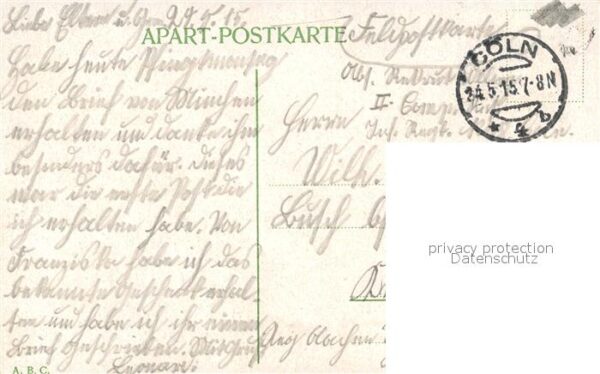 Liebe Eltern u. 24.5.15.
APART-POSTKARTE
Feldpostkarte
Habe heute Pfingstmontag
den Brief von München
erhalten und danke ihm
besonders dafür. Dieses
war die erste Post die
ich erhalten habe. Von
Franziska habe ich das
bekannte Geschenk erhal-
ten und habe ich ihr einen
Brief geschrieben. Mit Gruß
Leonard.
A. B. C.
CÖLN
24.5.15.7-8N
* 4 b
Abs. Rekrut
II. Comp.
Inf. Regt.
Herrn
Wilh.
Busch
Reg Aachen
privacy protection
Datenschutz